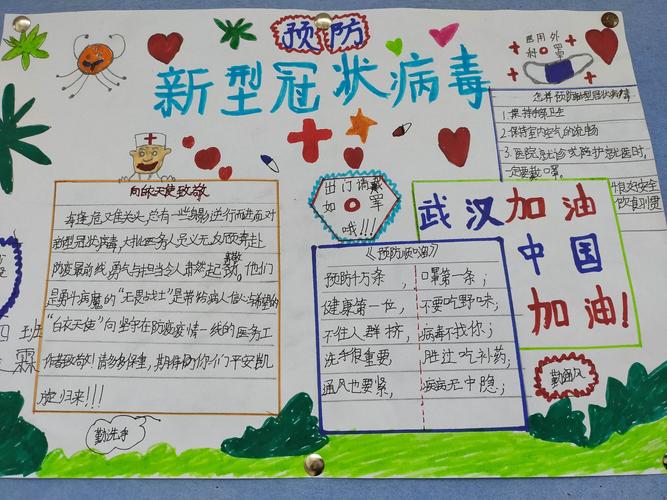 预防
新型冠状病毒
医用外
科口罩
怎样预防新型冠状病毒
1.保持手部卫生
2.保持室内空气的流畅
3.医院就诊或陪护就医时,
一定要戴口罩
饮食
出门请戴
如口罩
哦!!!
向白衣天使致敬
每逢危难关头,总有一些身影逆行而进面对
新型冠状病毒,大批医务人员义无反顾奔赴
防疫最前线,勇气与担当令人肃然起敬。他们
是勇斗病魔的"无畏战士"是带给病人信心与希望的
"白衣天使"向坚守在防疫疫情一线的医务工
作者致敬!请务多保重,期待你们平安凯
旋归来!!!
武汉加油
中国
加油!
《预防顺口溜》
预防千万条, 口罩第一条;
健康第一位, 不要吃野味;
不往人群挤, 病毒不找你;
洗手很重要, 胜过吃补药;
通风也要紧, 疾病无中隐;
四班
霖
勤洗手
勤通风